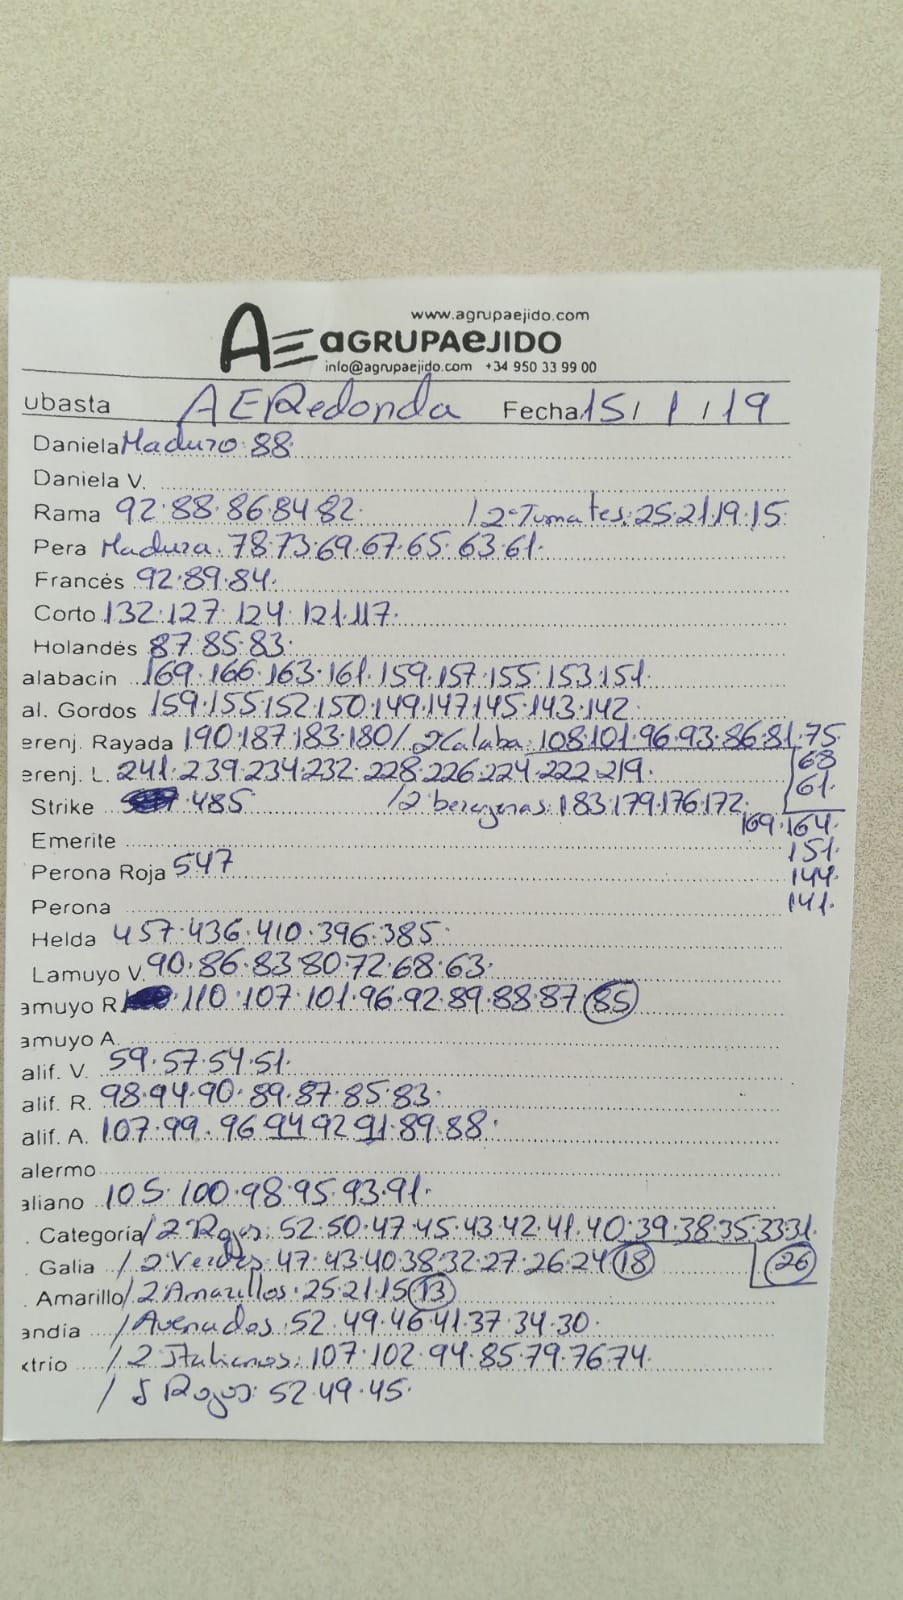 www.agrupaejido.com
AE aGRUPAeJIDO
info@agrupaejido.com +34 950 33 99 00
ubasta AERedonda Fecha 15/1/19
Daniela Maduro 88
Daniela V.
Rama 92.88.86.84.82 / 2ªTomates: 25.21.19.15
Pera Madura. 78.73.69.67.65.63.61.
Francés 92.89.84.
Corto 132.127.124.121.117.
Holandés 87.85.83.
alabacín 169.166.163.161.159.157.155.153.151.
al. Gordos 159.155.152.150.149.147.145.143.142.
erenj. Rayada 190.187.183.180/2ªCalaba: 108.101.96.93.86.81.75
68
erenj. L. 241.239.234.232.228.226.224.222.219.
61.
Strike 485 /2 berejenas: 183.179.176.172.
169.164.
Emerite
151.
Perona Roja 547
144.
Perona
141.
Helda 457.436.410.396.385.
Lamuyo V. 90.86.83.80.72.68.63.
amuyo R. 110.107.101.96.92.89.88.87 85
amuyo A.
alif. V. 59.57.54.51.
alif. R. 98.94.90.89.87.85.83.
alif. A. 107.99.96.94.92.91.89.88.
alermo
aliano 105.100.98.95.93.91.
. Categoría /2 Rojos: 52.50.47.45.43.42.41.40.39.38.35.33.31.
. Galia /2 Verdes: 47.43.40.38.32.27.26.24 18 26
. Amarillo /2 Amarillos: 25.21.15 13
andia /Asenados: 52.49.46.41.37.34.30.
xtrio /2 Italianos: 107.102.94.85.79.76.74.
/ S Rojos: 52.49.45.